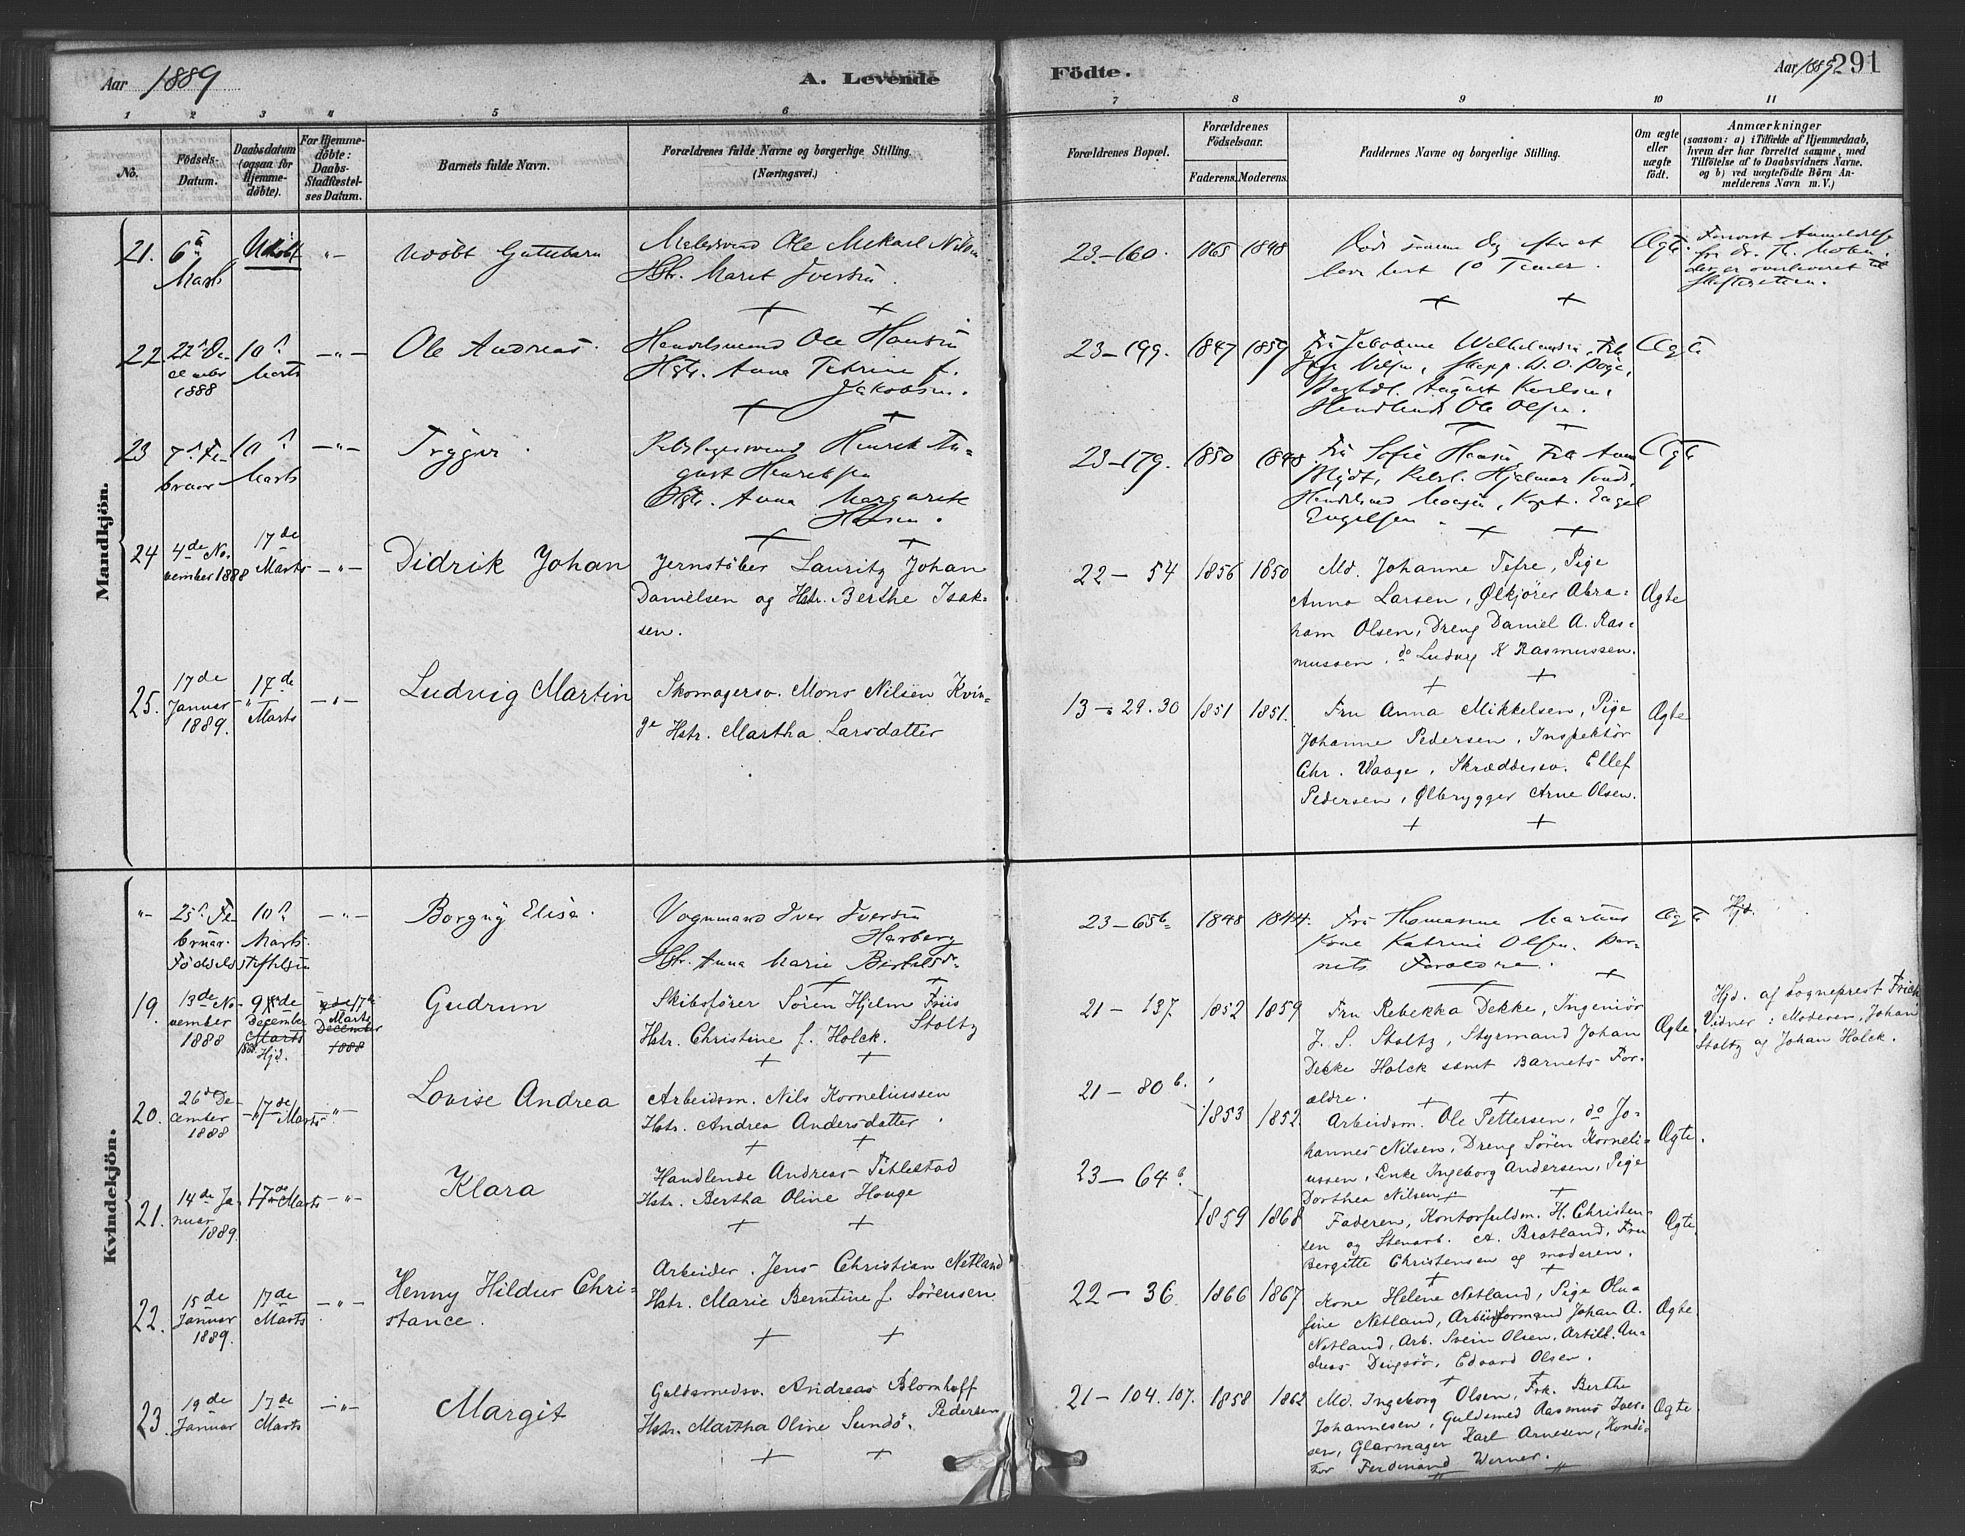 Aar 1889
A. Levende
Födte.
Aar 1889
291
1 2 3 4 5 6 7 8 9 10 11
No.
Födsels-
Datum.
Daabsdatum
(ogsaa for
Hjemme-
döbte).
For Hjemme-
döbte:
Daabs-
Stadfæstel-
ses Datum.
Barnets fulde Navn.
Forældrenes fulde Navne og borgerlige Stilling.
(Næringsvei.)
Forældrenes Bopæl.
Forældrenes
Födselsaar.
Faderens. Moderens.
Faddernes Navne og borgerlige Stilling.
Om ægte
eller
uægte
födt.
Anmærkninger
(saasom: a) i Tilfælde af Hjemmedaab,
hvem der har forrettet samme, med
Tilföielse af to Daabsvidners Navne.
og b) ved uægtefödte Börn An-
melderens Navn m. V.)
Mandkjön.
21. 6te
Marts
Udöbt
Udöbt Guttebarn
Ole Mekael
Hstr. Maret Iversen.
23-160. 1865 1848
Död samme Dag efter at
have levet 10 Timer.
Ægte
22. 22de De-
cember
1888
10de
Marts
Ole Andreas.
Handelsmand Ole Hansen
Hstr. Anna f.
Jakobsen.
23-199. 1847 1859
August Karlsen,
Ole Olsen.
Ægte
23 7de Fe-
bruar
10de
Marts
Trygve.
Henrik Au-
gust Henriksen
Hstr. Anna Margarete
Hansen.
23-179. 1850 1848
Fru Sofie Hansen
Hjelmar
Engel
Engelsen.
Ægte
24 4de No-
vember 1888
17de
Marts
Didrik Johan
Jernstøber Lauritz Johan
Danielsen og Hstr. Berthe Isak-
sen.
22-54 1856 1850
Md. Johanne Tefre, Pige
Anna Larsen, Ølkjører Abra-
ham Olsen, Dreng Daniel A. Ras-
mussen, do Ludvig K Rasmussen.
Ægte
25. 17de
Januar
1889.
17de
Marts
Ludvig Martin
Skomagersv. Mons Nilsen Kvin-
ge Hstr. Martha Larsdatter
13-29.30 1851 1851.
Fru Anna Mikkelsen, Pige
Johanne Pedersen, Inspektör
Chr. Waage, Skrædersv. Ellef
Pedersen, Ølbrygger Arne Olsen.
Ægte
Kvindekjön.
25de Fe-
bruar.
10de
Marts.
Borgny Elise.
Vognmand Iver Iversen
Hstr. Anna Marie
23-65b 1848 1844.
Fru Thomasine Martens
Kone Katrine Olsen. Bar-
nets Forældre.
Ægte
Hjd.
19. 13de No-
vember
1888
9de
December
Marts
1888
Hjd.
17de
Marts
December
1888
Gudrun
Skibsfører Sören Hjelm Friis
Stoltz
Hstr. Christine f. Holck.
21-137. 1852 1859
Fru Rebekka Dekke, Ingeniör
J. S. Stoltz, Styrmand Johan
Dekke Holck samt Barnets For-
ældre.
Ægte.
Hjd. af Sogneprest Frich
Vidner: Moderen, Johan
Stoltz og Johan Holck.
20. 26de De-
cember
1888
17de Marts
Lovise Andrea
Arbeidsm. Nils Korneliussen
Hstr. Andrea Andersdatter.
21-80b. 1853 1852.
Arbeidsm. Ole Pettersen, do Jo-
hannes Nilsen, Dreng Sören Korneli-
ussen, Enke Ingeborg Andersen, Pige
Dorthea Nilsen
Ægte.
21. 14de Ja-
nuar
1889.
17de Marts
Klara
Handlende Andreas Titlestad
Hstr. Bertha Oline Houge
23-64b. 1859 1868
Faderen, Kontorfuldm. H. Christen-
sen og Stenarb. A. Bratland, Fru
Bergitte Christensen og moderen.
Ægte
22. 15de
Januar
1889.
17de
Marts
Henny Hildur Chri-
stance.
Arbeider. Jens Christian Netland
Hstr. Marie Berntine f. Sørensen
22-36. 1866 1867
Kone Helene Netland, Pige Olu-
fine Netland, Arbeidsformand Johan A.
Netland, Arb. Svein Olsen, Artill. An-
dreas Dingsør, Edvard Olsen.
Ægte.
23. 19de
Januar
17de
Marts
Margit
Guldsmedsv. Andreas Blomhoff
Pedersen
Hstr. Martha Oline Sundö.
21-104.107. 1858 1862
Md. Ingeborg Olsen, Frk. Berthe
Johannesen, Guldsmed Rasmus Iver-
sen, Glarmager Karl Arnesen, Kondi-
tor Ferdinand Werner.
Ægte.